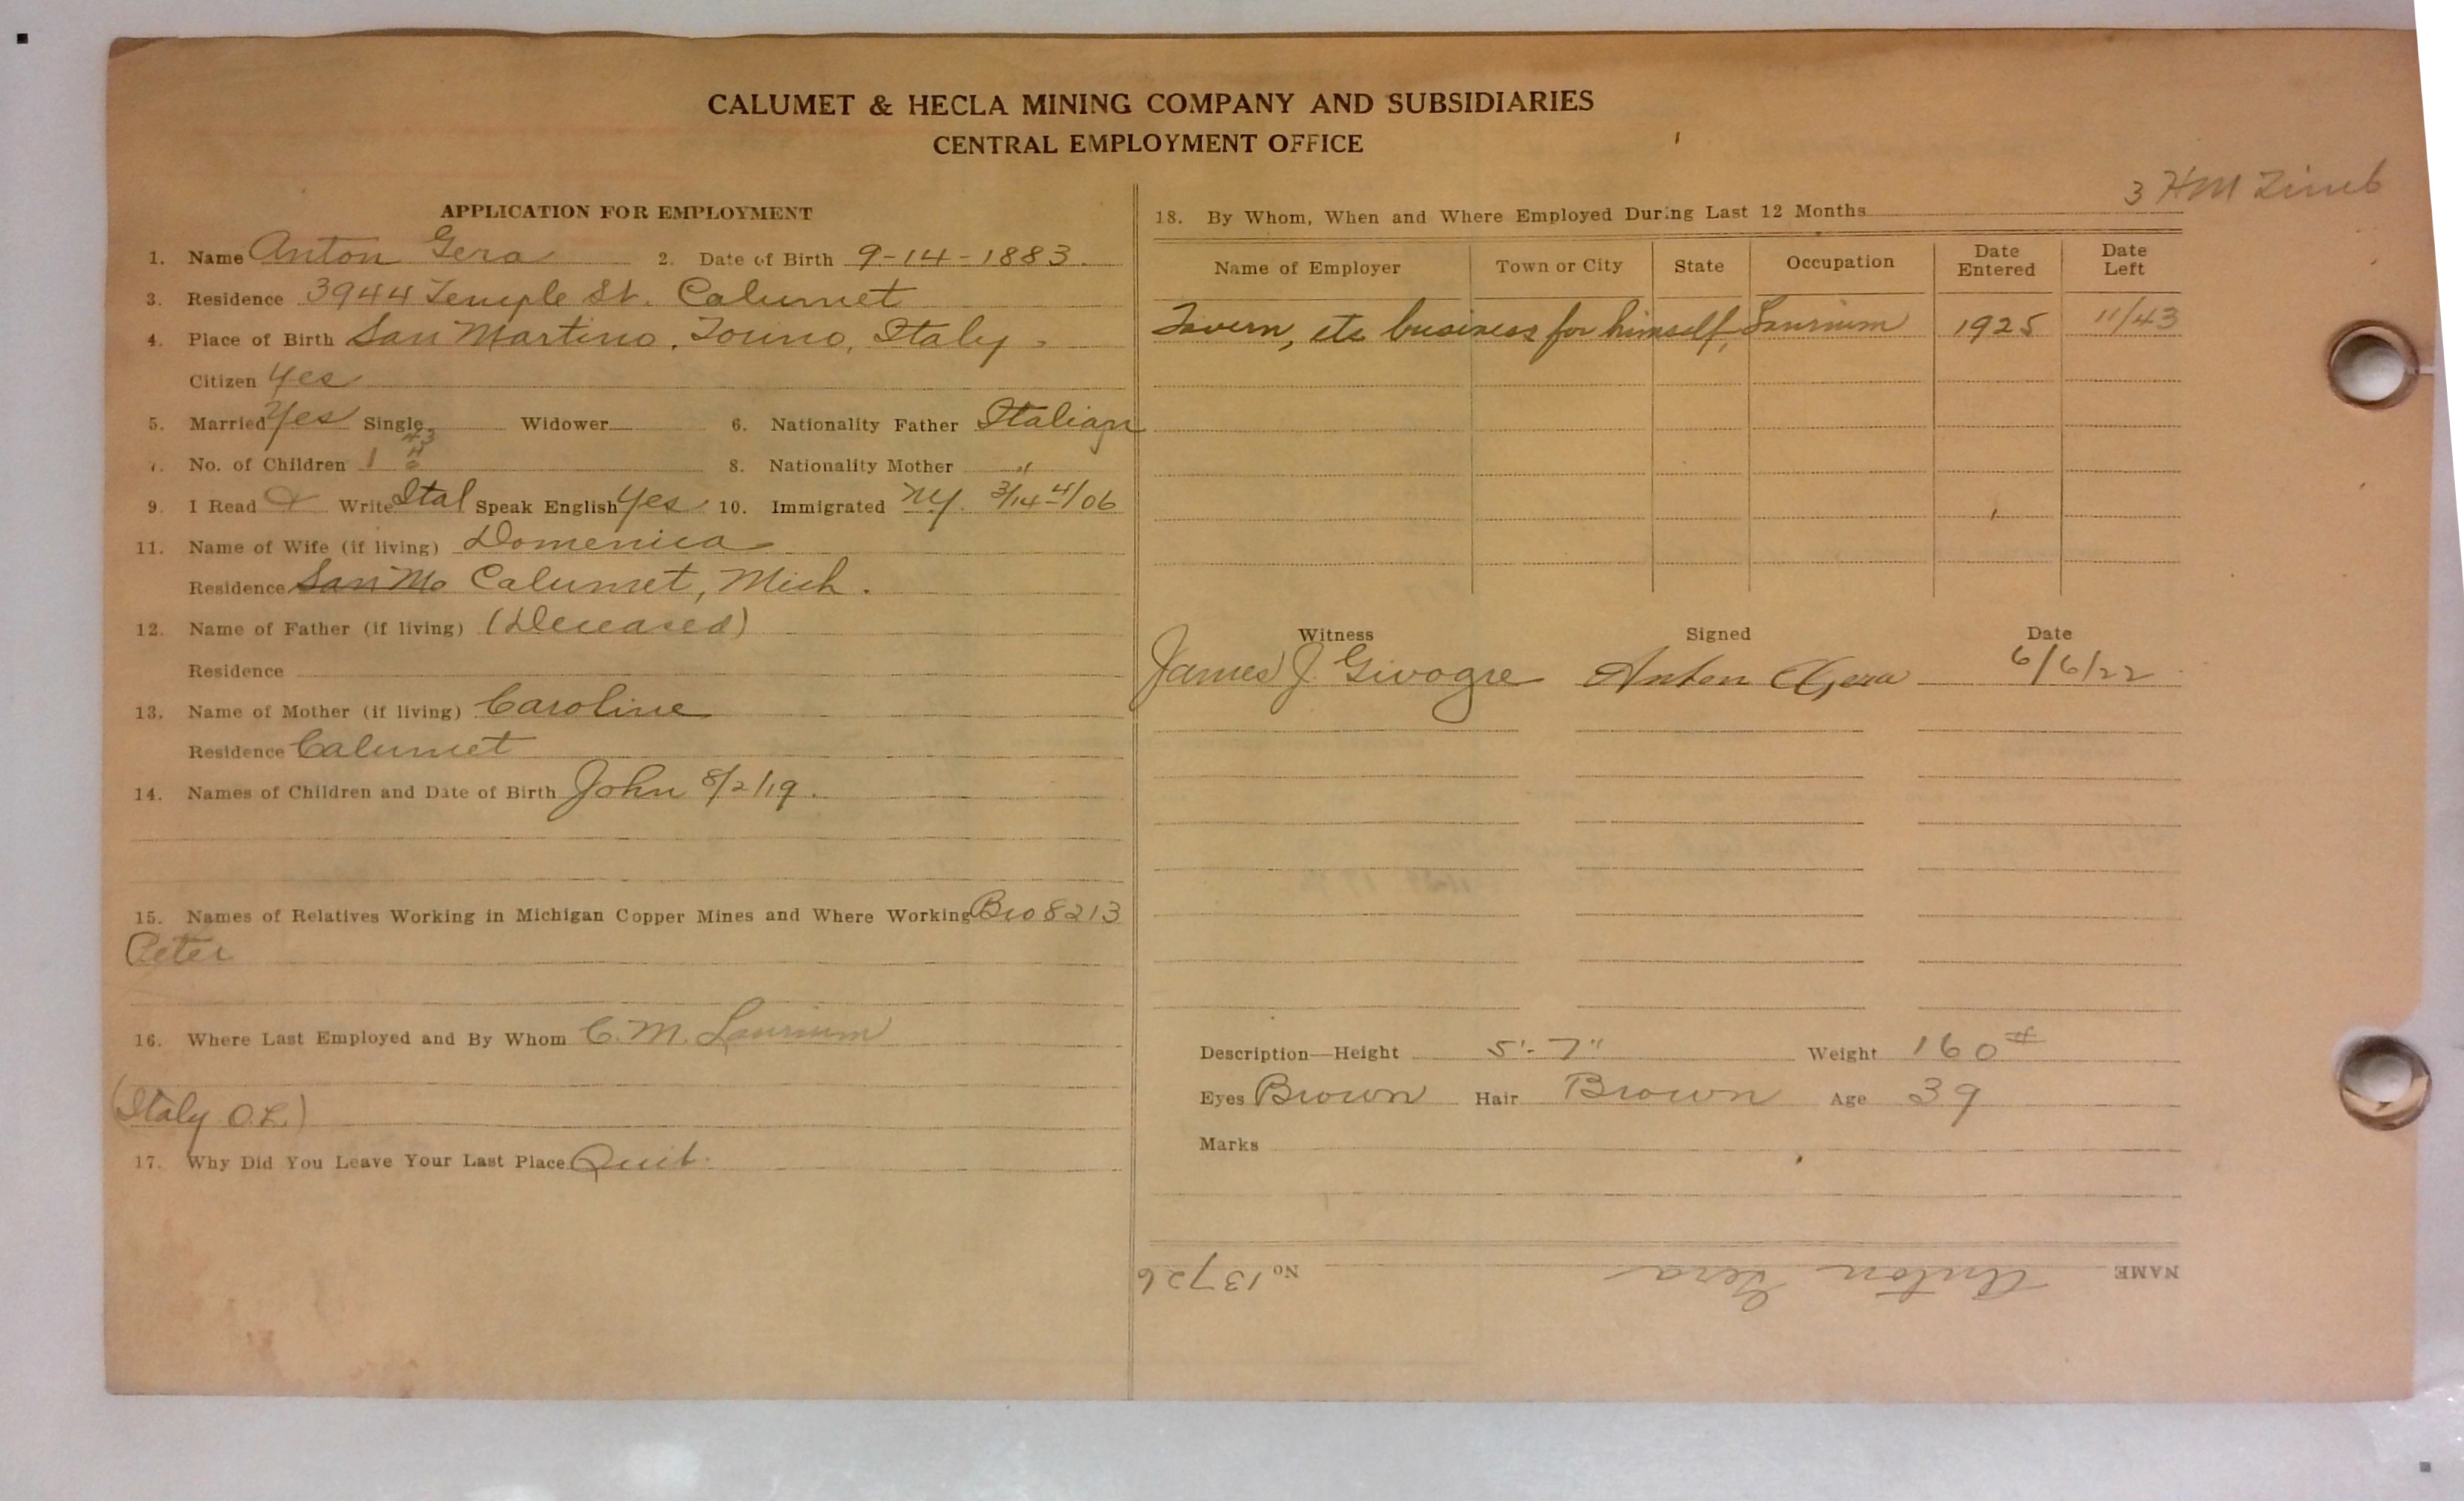 CALUMET & HECLA MINING COMPANY AND SUBSIDIARIES
CENTRAL EMPLOYMENT OFFICE
3 HM
APPLICATION FOR EMPLOYMENT
1. Name Anton Gera 2. Date of Birth 9-14-1883.
3. Residence 3944 Temple St. Calumet
4. Place of Birth San Martino, Torino, Italy
Citizen Yes
5. Married Yes Single Widower 6. Nationality Father Italian
7. No. of Children 1 43
8. Nationality Mother "
9. I Read & Write Ital Speak English Yes 10. Immigrated N.Y. 3/14-4/06
11. Name of Wife (if living) Domenica
Residence San Mo Calumet, Mich.
12. Name of Father (if living) (Deceased)
Residence
13. Name of Mother (if living) Caroline
Residence Calumet
14. Names of Children and Date of Birth John 8/2/19.
15. Names of Relatives Working in Michigan Copper Mines and Where Working Bro 8213
Peter
16. Where Last Employed and By Whom C.M. Laurium
(Italy O.L.)
17. Why Did You Leave Your Last Place Quit.
18. By Whom, When and Where Employed During Last 12 Months
Name of Employer Town or City State Occupation Date Entered Date Left
Tavern, etc business for himself, Laurium 1925 11/43
Witness Signed Date
James J. Givogre Anton Gera 6/6/22
Description—Height 5'-7" Weight 160#
Eyes Brown Hair Brown Age 39
Marks
NAME Anton Gera No 13726